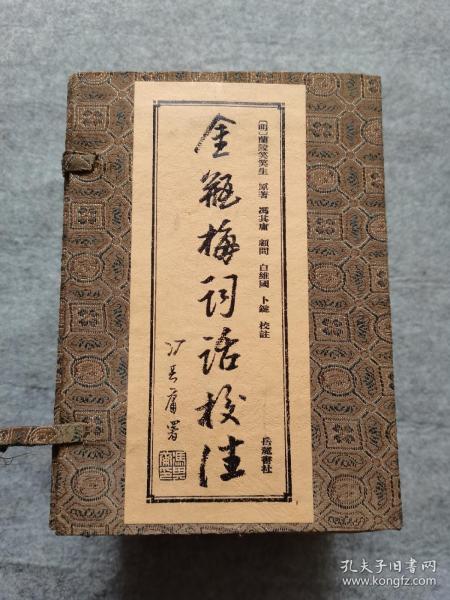 [明]蘭陵笑笑生 原著 馮其庸 顧問 白維國 卜鍵 校註
金瓶梅词话校注
冯其庸署
岳麓書社
孔夫子旧书网
www.kongfz.com